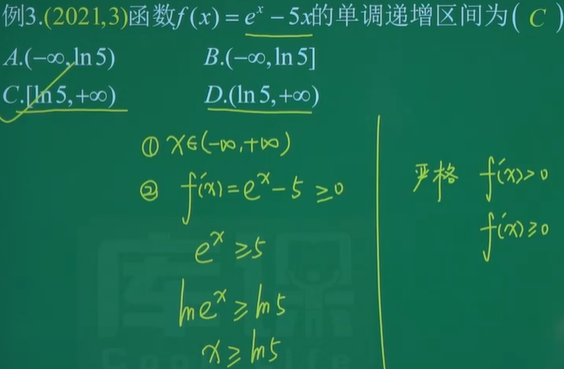 例3.(2021,3)函数f(x)=eˣ-5x的单调递增区间为( C )
A.(-∞,ln5) B.(-∞,ln5]
C.[ln5,+∞) D.(ln5,+∞)
① x∈(-∞,+∞)
② f′(x)=eˣ-5≥0
eˣ≥5
lneˣ≥ln5
x≥ln5
严格 f′(x)>0
f′(x)≥0
库课